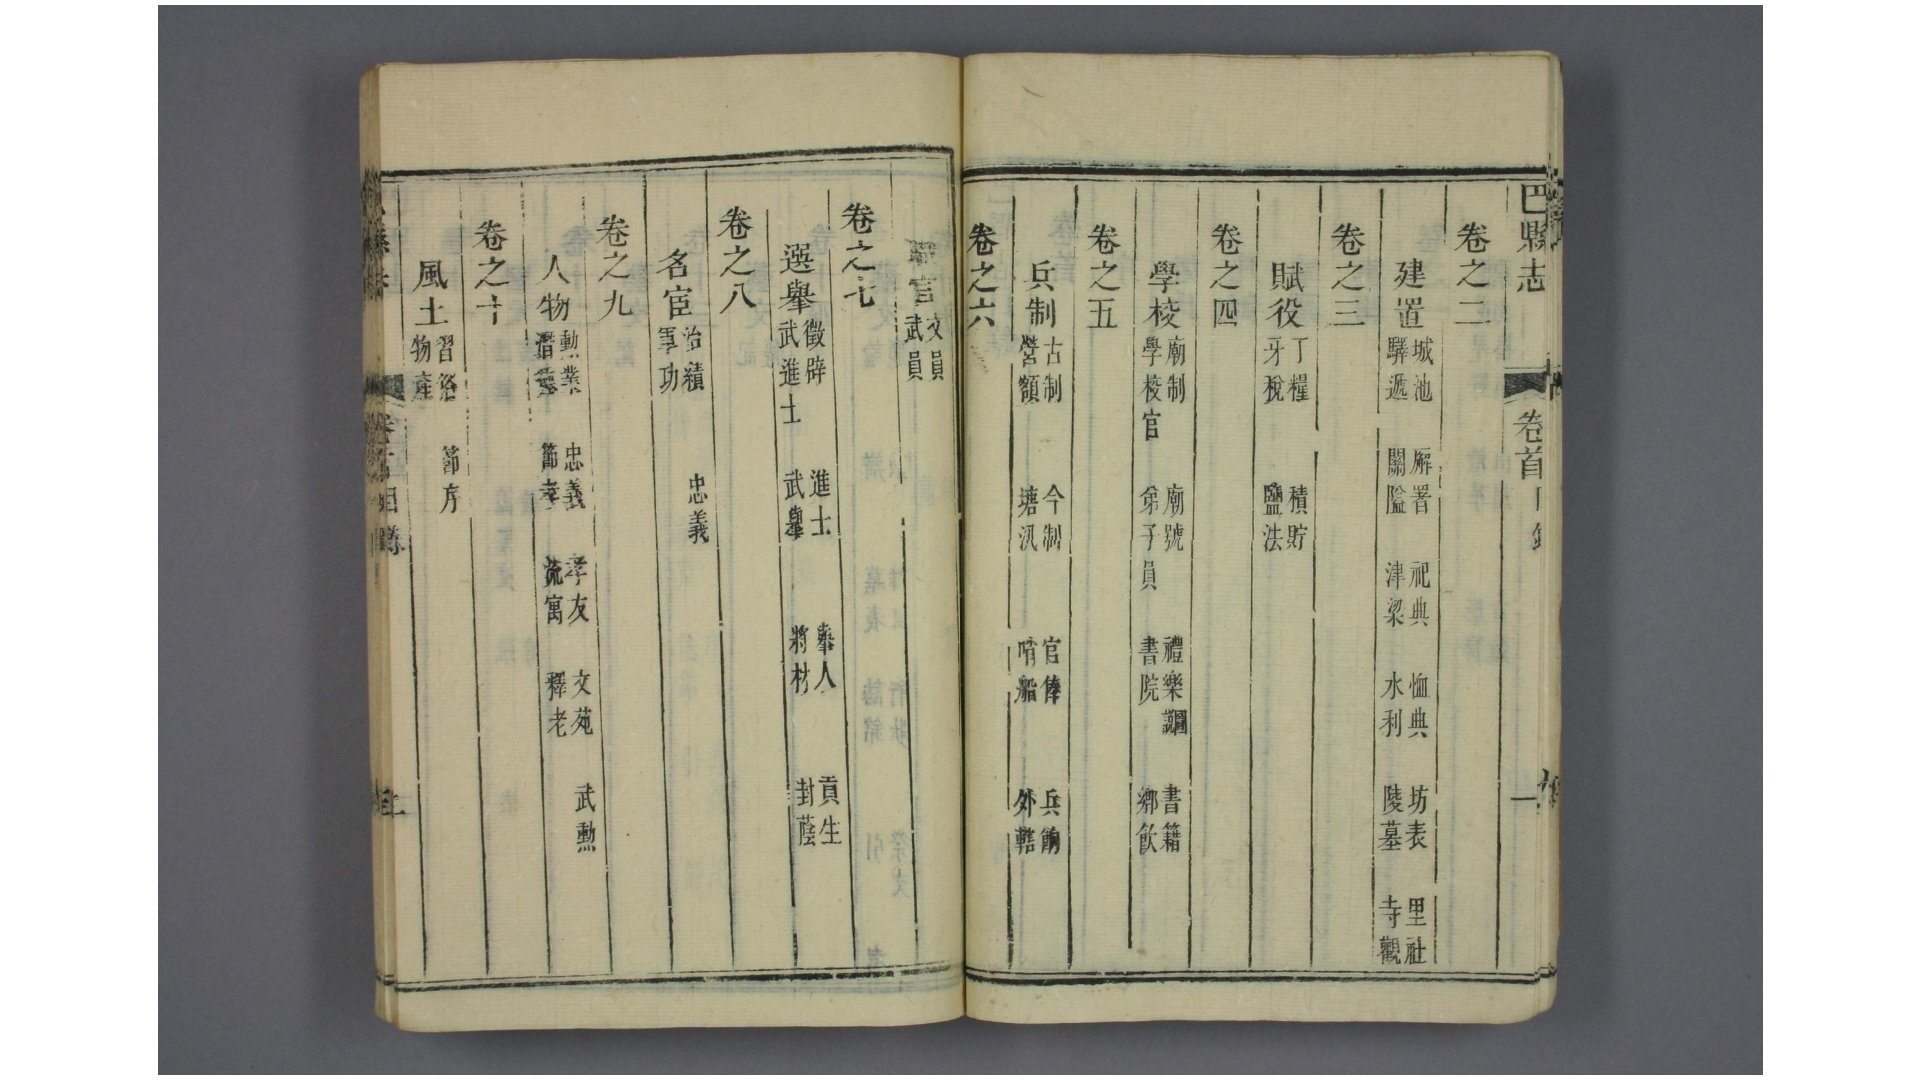 巴縣志 卷首 目錄 一
卷之二
建置 城池 廨署 祀典 恤典 坊表 里社
驛遞 關隘 津梁 水利 陵墓 寺觀
卷之三
賦役 丁糧 積貯
牙稅 鹽法
卷之四
學校 廟制 廟號 禮樂 書籍
學校官 弟子員 書院 鄉飲
卷之五
兵制 古制 今制 官俸 兵餉
營額 塘汛 哨船 外轄
卷之六
職官 文員
武員
卷之七
選舉 徵辟 進士 舉人 貢生
武進士 武舉 將材 封蔭
卷之八
名宦 治績 忠義
軍功
卷之九
人物 勳業 忠義 孝友 文苑 武勳
節孝 流寓 釋老
卷之十
風土 習俗 節序
物產